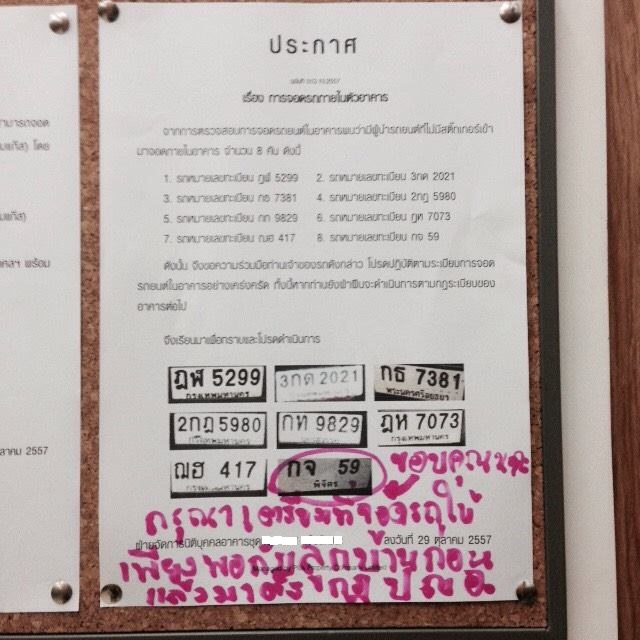 ประกาศ
เรื่อง การจอดรถภายในตัวอาคาร
จากการตรวจสอบการจอดรถยนต์ในอาคารพบว่ามีผู้นำรถยนต์ที่ไม่มีสติ๊กเกอร์เข้า
มาจอดภายในอาคาร จำนวน 8 คัน ดังนี้
1. รถหมายเลขทะเบียน ฎฬ 5299 2. รถหมายเลขทะเบียน 3กด 2021
3. รถหมายเลขทะเบียน กธ 7381 4. รถหมายเลขทะเบียน 2กฎ 5980
5. รถหมายเลขทะเบียน กท 9829 6. รถหมายเลขทะเบียน ฎห 7073
7. รถหมายเลขทะเบียน ฌฮ 417 8. รถหมายเลขทะเบียน กจ 59
ดังนั้น จึงขอความร่วมมือท่านเจ้าของรถดังกล่าว โปรดปฏิบัติตามระเบียบการจอด
รถยนต์ในอาคารอย่างเคร่งครัด ทั้งนี้หากท่านยังฝ่าฝืนจะดำเนินการตามกฎระเบียบของ
อาคารต่อไป
จึงเรียนมาเพื่อทราบและโปรดดำเนินการ
ฎฬ 5299 3กด 2021 กธ 7381
กรุงเทพมหานคร พระนครศรีอยุธยา
2กฎ 5980 กท 9829 ฎห 7073
กรุงเทพมหานคร
ฌฮ 417 กจ 59
พิจิตร
ขอบคุณนะ
กรุณาเตรียมที่จอดรถให้
ฝ่ายจัดการนิติบุคคลอาคารชุด ลงวันที่ 29 ตุลาคม 2557
เพียงพอกับลูกบ้านก่อน
แล้วมาตั้งกฎ
ามารถจอด
โดย
พร้อม
ลาคม 2557